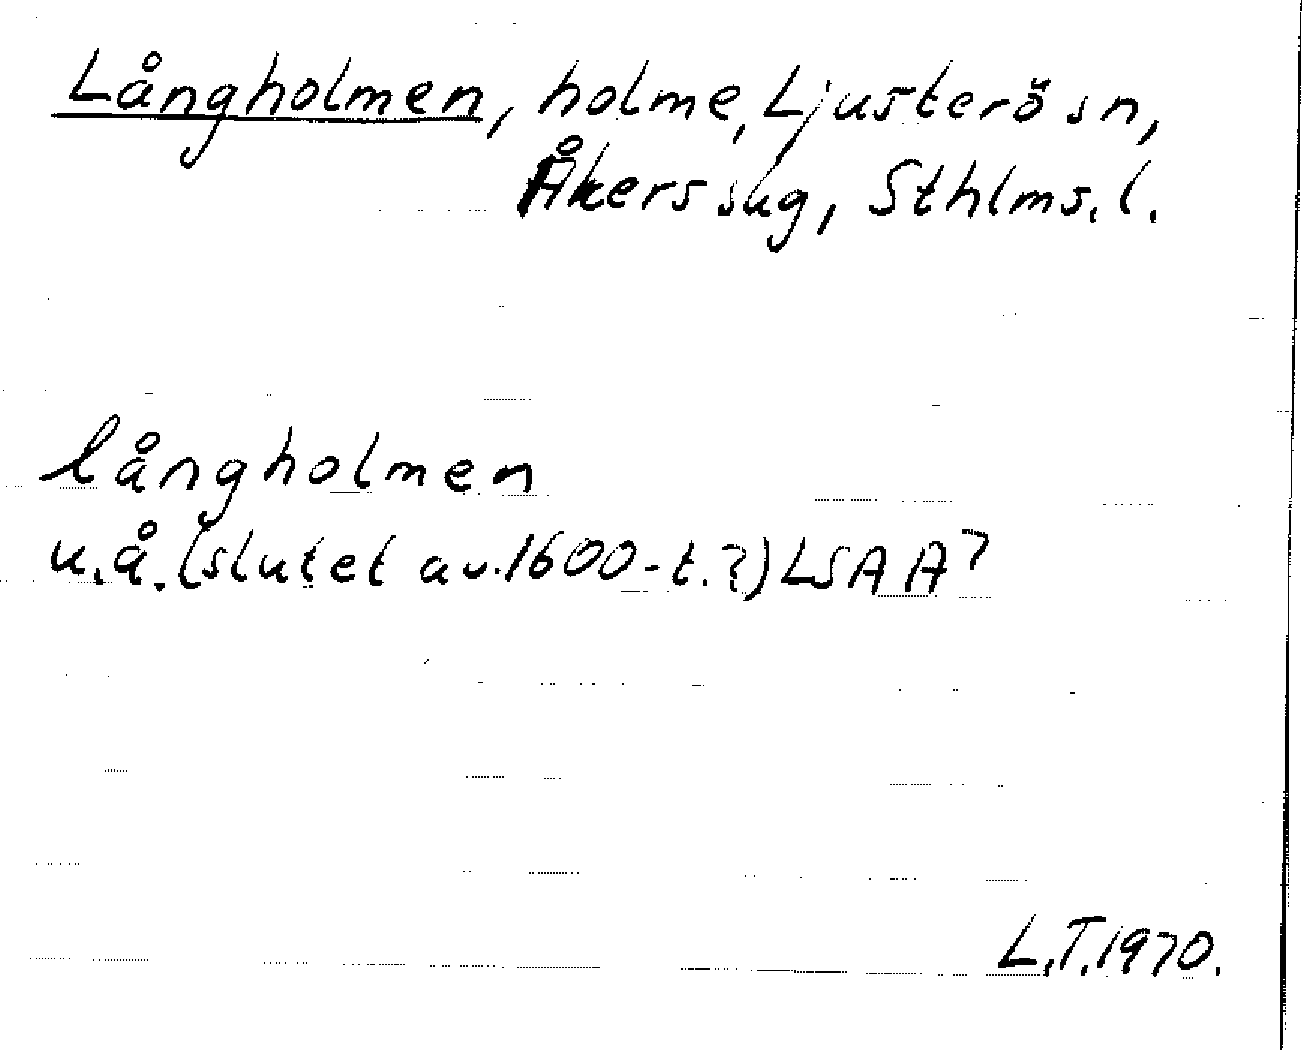 Långholmen, holme, Ljusterö sn,
Åkers skg, Sthlms. l.
långholmen
u.å. (slutet av. 1600-t.?) LSA A7
L.T. 1970.